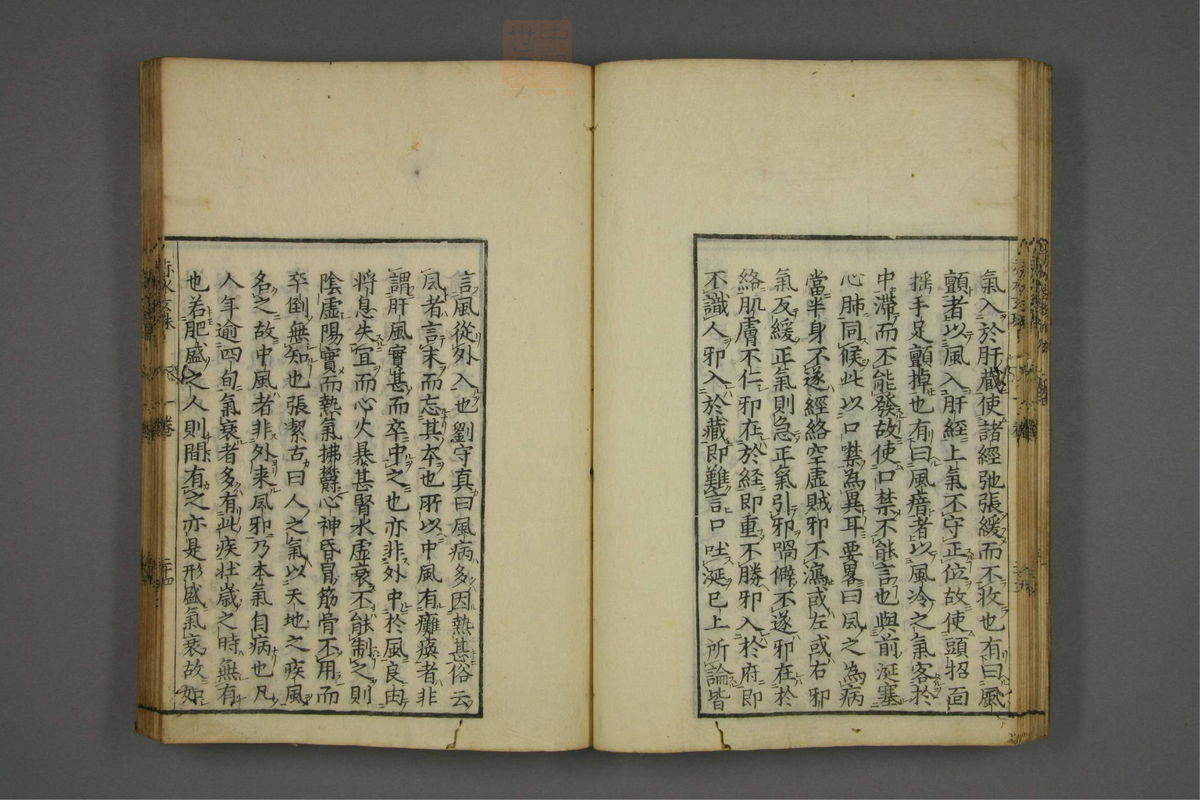 氣入於肝藏使諸經弛張緩而不收也有曰風
顫者以風入肝經上氣不守正位故使頭招面
揺手足顫掉也有曰風瘖者以風冷之氣客於
中滯而不能發故使口禁不能言也與前涎塞
心肺同候此以口噤為異耳要畧曰風之為病
當半身不遂經絡空虛賊邪不瀉或左或右邪
氣反緩正氣則急正氣引邪喎僻不遂邪在於
絡肌膚不仁邪在於経即重不勝邪入於府即
不識人邪入於藏即難言口吐涎已上所論皆
言風從外入也劉守真曰風病多因熱甚俗云
風者言末而忘其本也所以中風有癱瘓者非
謂肝風實甚而卒中之也亦非外中於風良由
將息失宜而心火暴甚腎水虛衰不能制之則
陰虛陽實而熱氣拂欝心神昏冒筋骨不用而
卒倒無知也張潔古曰人之氣以天地之疾風
名之故中風者非外来風邪乃本氣自病也凡
人年逾四旬氣衰者多有此疾壮歳之時無有
也若肥盛之人則間有之亦是形盛氣衰故如